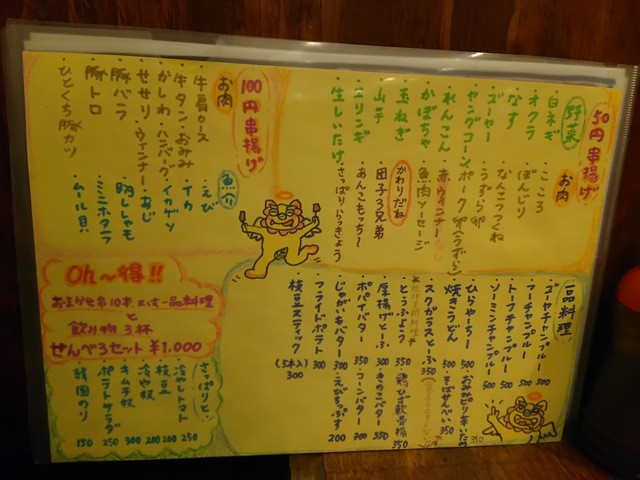 50円串揚げ
野菜
・白ネギ
・オクラ
・なす
・ズッキーニ
・ヤングコーン
・れんこん
・かぼちゃ
・玉ねぎ
・山芋
・エリンギ
・生しいたけ
お肉
・こころ
・ぼんじり
・なんこつつくね
・うずら卵
・ポーク卵(うずら)
・赤ウィンナー
・魚肉ソーセージ
かわりだね
・団子3兄弟
・あんこもっち〜
・さっぱりらっきょう
100円串揚げ
お肉
・牛肩ロース
・牛タン
・かしわ
・せせり
・豚バラ
・豚トロ
・ひとくち豚カツ
・おみみ
・ハンバーグ
・ウィンナー
魚介
・えび
・イカ
・イカゲソ
・あじ
・子持ししゃも
・ミニホタテ
・ムール貝
一品料理
・ゴーヤチャンプルー 500
・フーチャンプルー 500
・トーフチャンプルー 500
・ソーミンチャンプルー 500
・ひらやーちー 500
・おみみピリ辛いため 350
・焼きうどん 500
・そばせんべい 350
・スクガラスとーふ 350
・とうふよう 350
・鶏ひざ軟骨揚 350
・厚揚げとーふ 300
・きのこバター 350
・ポパイバター 350
・コーンバター 300
・じゃがいもバター 300
・えびちっぷす 200
・フライドポテト 300
・枝豆スティック (5本入) 300
Oh〜得!!
おまかせ串10本又は一品料理
と
飲み物3杯
せんべろセット ¥1,000
さっぱりと・・
・冷やしトマト 250
・枝豆 200
・冷や奴 200
・キムチ奴 300
・ポテトサラダ 250
・韓国のり 150